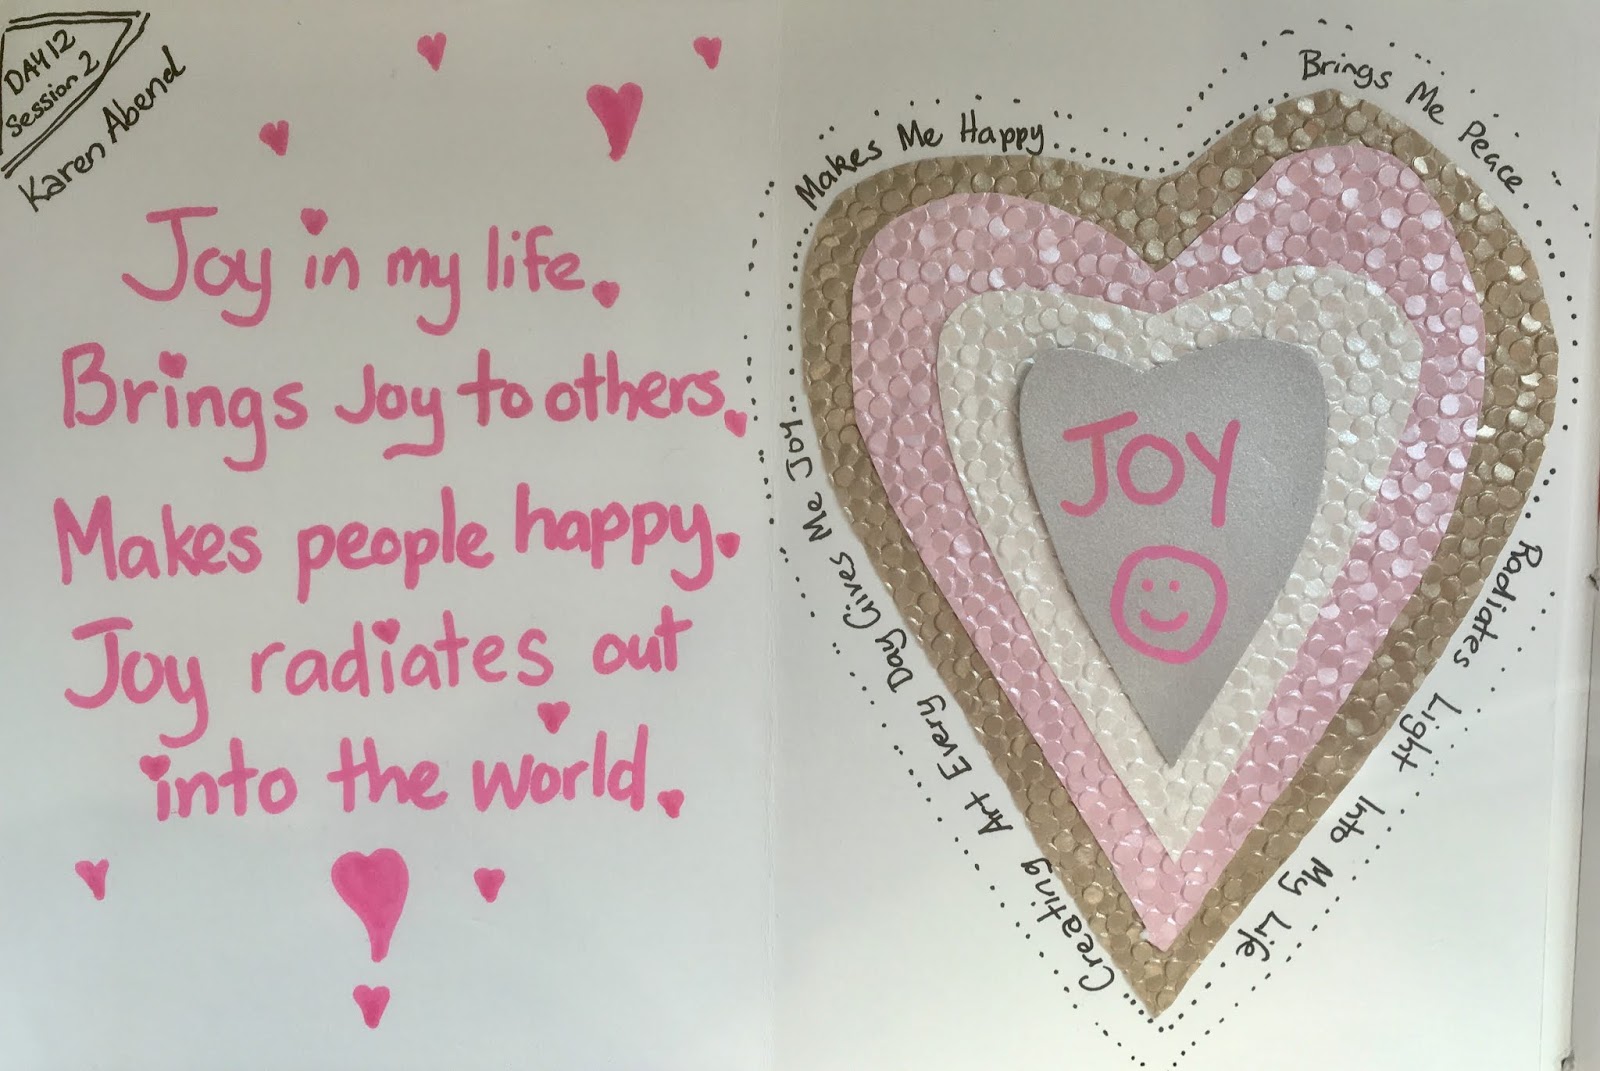 DAY 12
Session 2
Karen Abend
Joy in my life.
Brings Joy to others.
Makes people happy.
Joy radiates out
into the world.
Creating Art Every Day Gives Me Joy
Makes Me Happy
Brings Me Peace
Radiates Light Into My Life
JOY